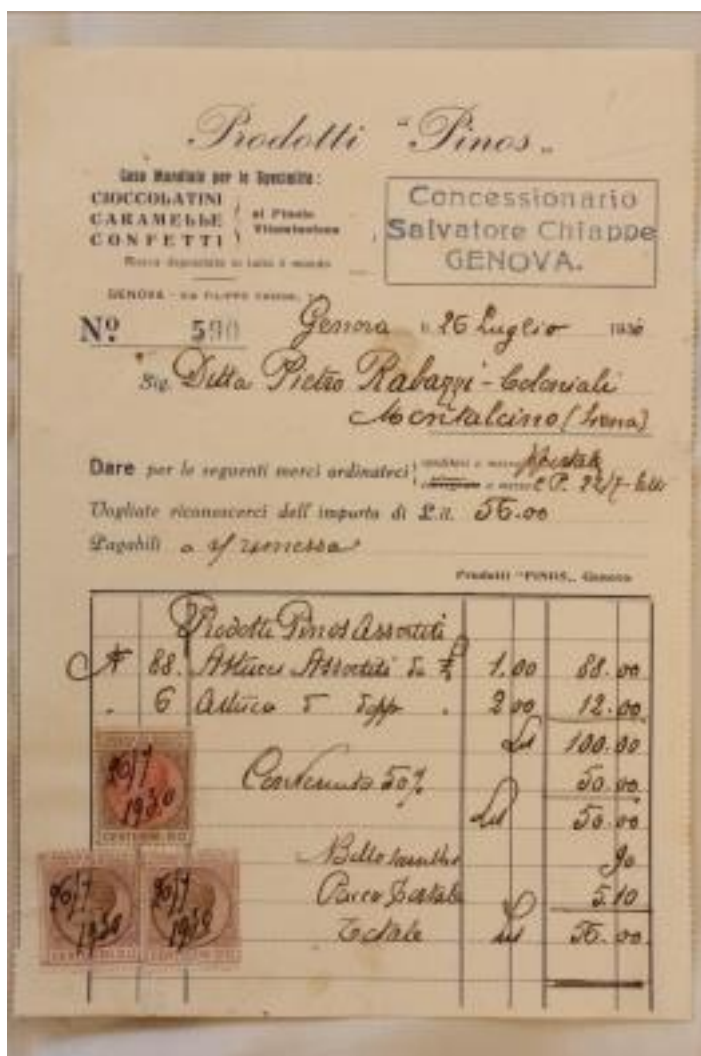 Prodotti "Pinos„
Casa Mondiale per le Specialità:
CIOCCOLATINI
CARAMELLE
CONFETTI
al Pinolo
Vitaminizzato
Marca depositata in tutto il mondo
Concessionario
Salvatore Chiappe
GENOVA.
GENOVA - VIA FILIPPO
Nº 590
Genova, li 26 Luglio 1930
Sig. Ditta Pietro Rabazzi - Coloniali
Montalcino (Siena)
Dare per le seguenti merci ordinateci
a mezzo
a mezzo C.P. 22/7
Vogliate riconoscerci dell'importo di Lit. 56.00
Pagabili a rimessa
Prodotti "PINOS„ Genova
Prodotti Pinos Assortiti
N 88. Astucci Assortiti da £ 1.00 88.00
" 6 Astucci 2 00 12.00
Lit 100.00
50% 50.00
Lit 50.00
Bollo 90
Pacco Postale 5.10
Totale Lit 56.00
26/7
1930
CENTESIMI
26/7
1930
CENTESIMI
26/7
1930
CENTESIMI